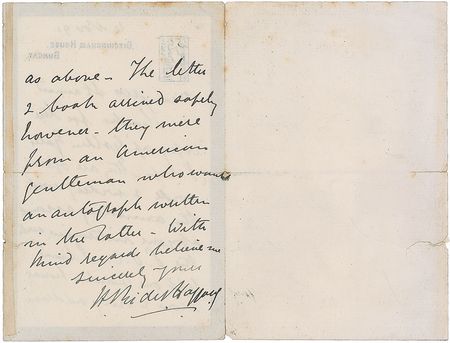 as above – The letter
& book arrived safely
however – they were
from an American
gentleman who wants
an autograph written
in the latter – With
kind regards believe me
sincerely yours
H Rider Haggard
DITCHINGHAM HOUSE,
BUNGAY.